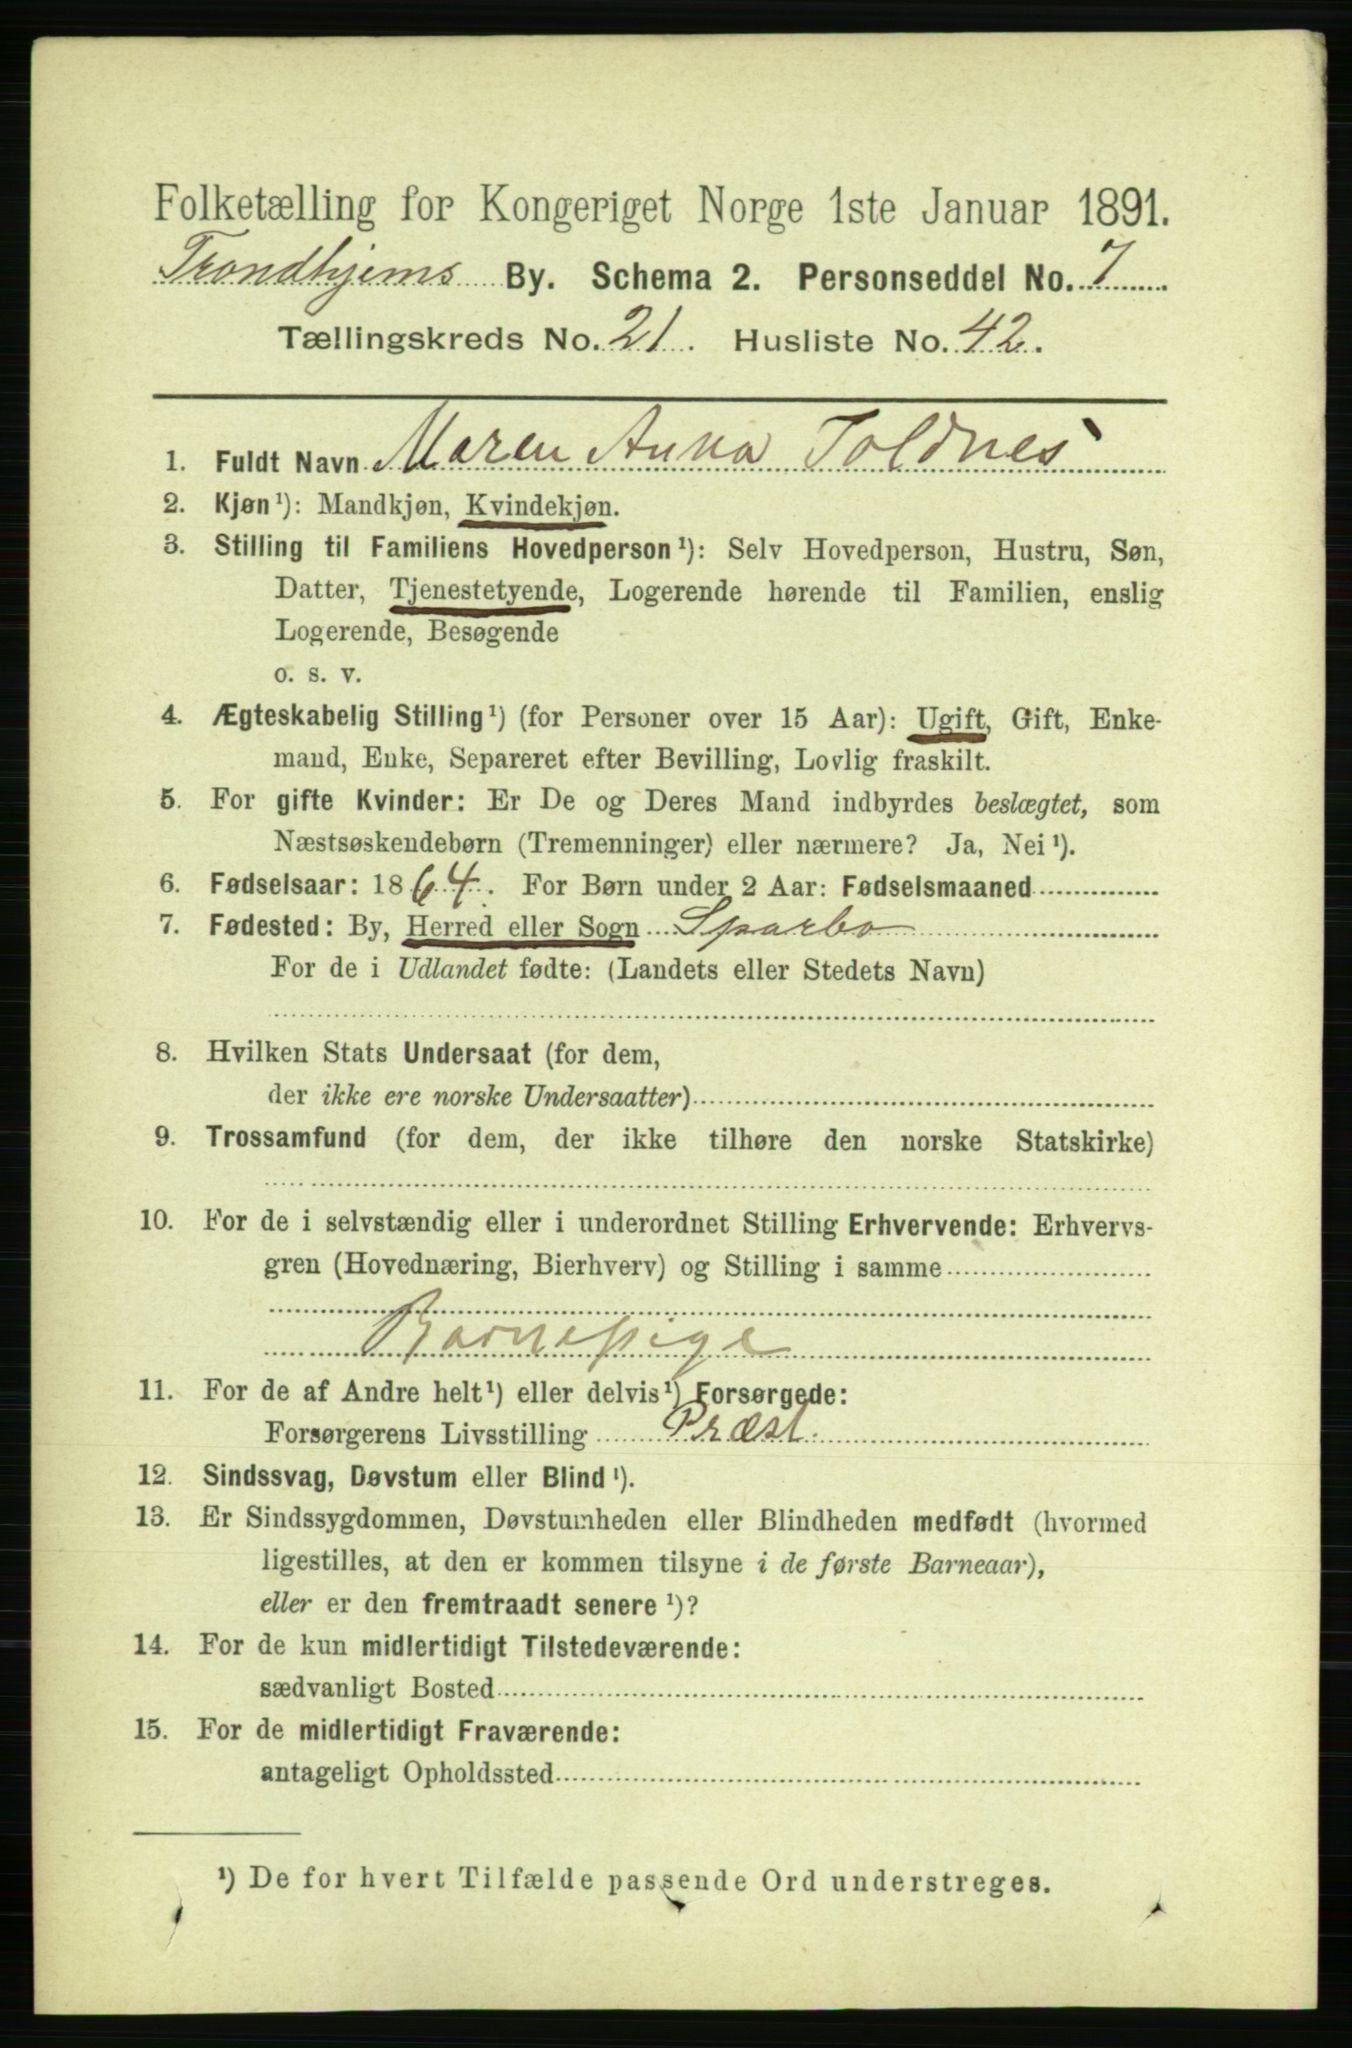 Folketælling for Kongeriget Norge 1ste Januar 1891.
Trondhjems By. Schema 2. Personseddel No. 7
Tællingskreds No. 21. Husliste No. 42.
1. Fuldt Navn Maren Anna Toldnes
2. Kjøn¹): Mandkjøn, Kvindekjøn.
3. Stilling til Familiens Hovedperson¹): Selv Hovedperson, Hustru, Søn,
Datter, Tjenestetyende, Logerende hørende til Familien, enslig
Logerende, Besøgende
o. s. v.
4. Ægteskabelig Stilling¹) (for Personer over 15 Aar): Ugift, Gift, Enke-
mand, Enke, Separeret efter Bevilling, Lovlig fraskilt.
5. For gifte Kvinder: Er De og Deres Mand indbyrdes beslægtet, som
Næstsøskendebørn (Tremenninger) eller nærmere? Ja, Nei¹).
6. Fødselsaar: 1864. For Børn under 2 Aar: Fødselsmaaned
7. Fødested: By, Herred eller Sogn Sparbo
For de i Udlandet fødte: (Landets eller Stedets Navn)
8. Hvilken Stats Undersaat (for dem,
der ikke ere norske Undersaatter)
9. Trossamfund (for dem, der ikke tilhøre den norske Statskirke)
10. For de i selvstændig eller i underordnet Stilling Erhvervende: Erhvervs-
gren (Hovednæring, Bierhverv) og Stilling i samme
Barnepige
11. For de af Andre helt¹) eller delvis¹) Forsørgede:
Forsørgerens Livsstilling Præst.
12. Sindssvag, Døvstum eller Blind¹).
13. Er Sindssygdommen, Døvstumheden eller Blindheden medfødt (hvormed
ligestilles, at den er kommen tilsyne i de første Barneaar),
eller er den fremtraadt senere¹)?
14. For de kun midlertidigt Tilstedeværende:
sædvanligt Bosted
15. For de midlertidigt Fraværende:
antageligt Opholdssted
¹) De for hvert Tilfælde passende Ord understreges.